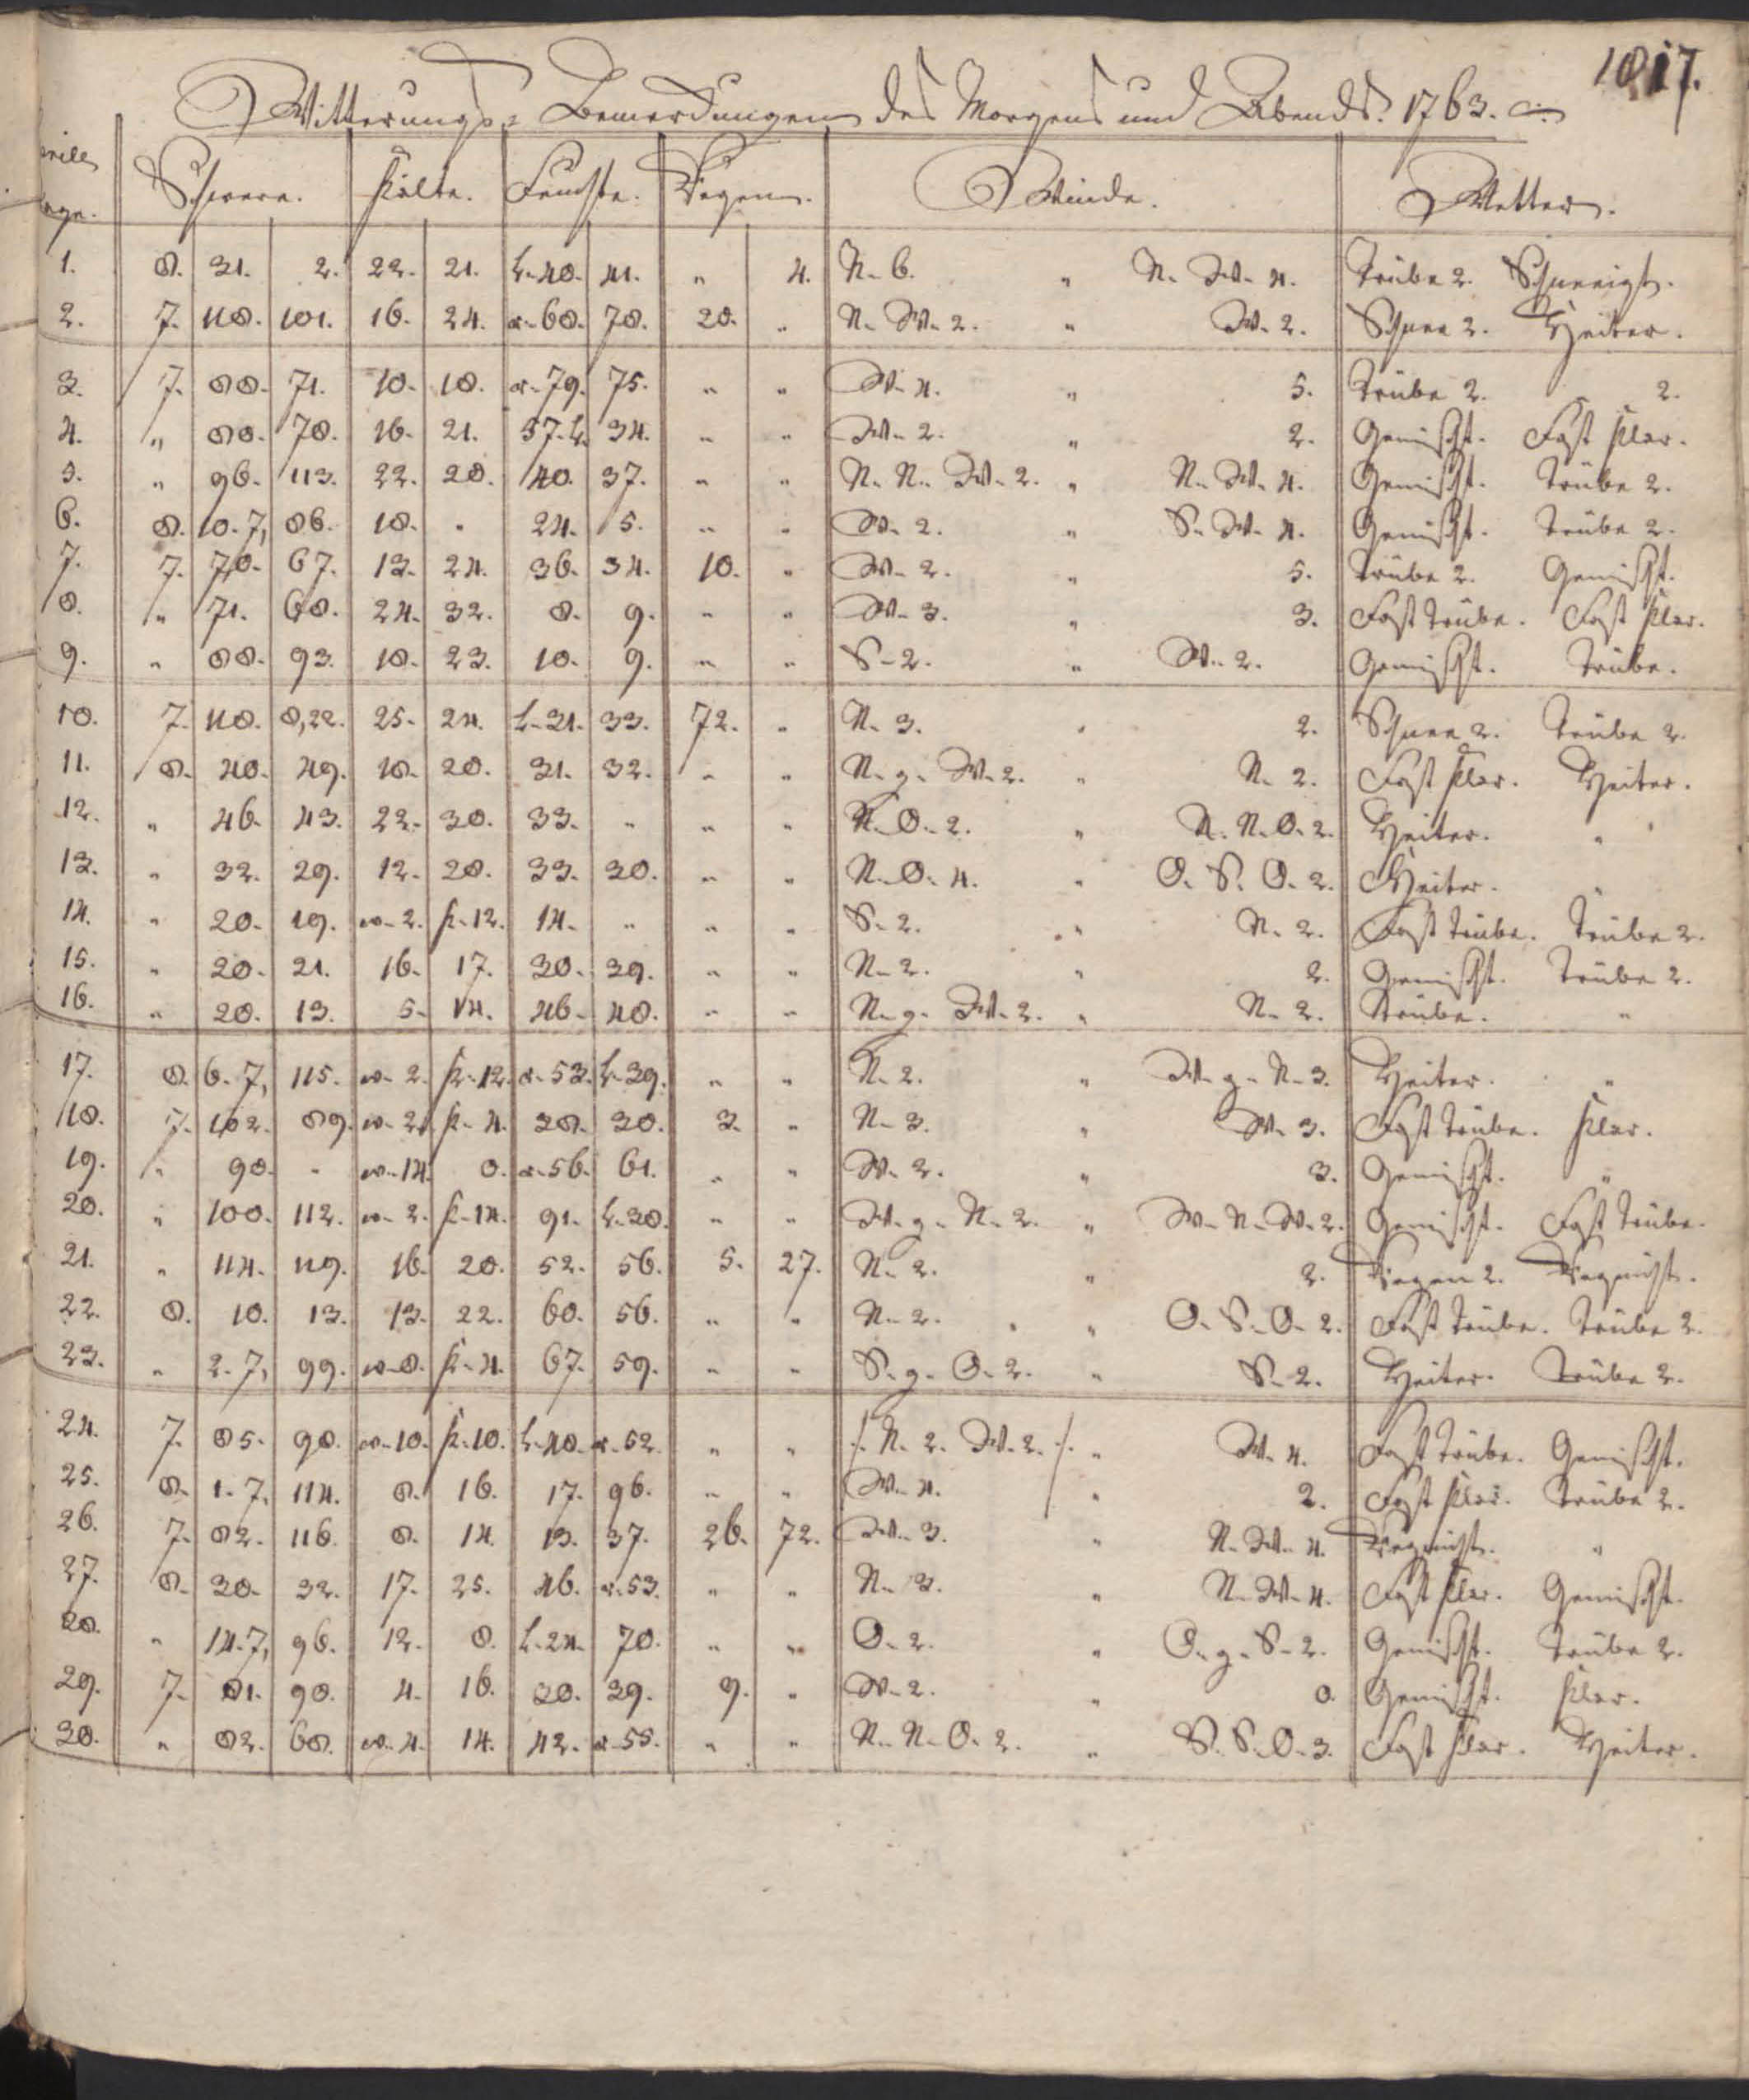 1017.
Witterungs- Bemerckungen des Morgens und Abends. 1763.
Schwere. Kälte. Feuchte. Regen. Winde. Wetter.
1. 8. 31. 2. 22. 21. L-40. 41. „ 4. N-6. „ N-W-4. Trübe 2. Schneeigt.
2. 7. 118. 101. 16. 24. r-68. 78. 28. „ N-W-2. „ W-2. Schnee 2. Heiter.
3. 7. 88. 71. 10. 18. r-79. 75. „ „ W-4. „ 5. Trübe 2. 2.
4. „ 88. 78. 16. 21. 37-L. 34. „ „ W-2. „ 2. Gemischt. Fast klar.
5. „ 96. 113. 22. 28. 40. 37. „ „ N-N-W-2. „ N-W-4. Gemischt. Trübe 2.
6. 8. 10-7, 86. 18. „ 24. 5. „ „ W-2. „ S-W-4. Gemischt. Trübe 2.
7. 7. 70. 67. 13. 24. 36. 34. 10. „ W-2. „ 5. Trübe 2. Gemischt.
8. „ 71. 68. 24. 32. 8. 9. „ „ W-3. „ 3. Fast trübe. Fast klar.
9. „ 88. 93. 18. 23. 10. 9. „ „ S-2. „ W-2. Gemischt. Trübe.
10. 7. 118. 8,22. 25. 24. L-31. 33. 72. „ N-3. „ 2. Schnee 2. Trübe 2.
11. 8. 40. 49. 18. 20. 31. 32. „ „ N-g-W-2. „ N-2. Fast klar. Heiter.
12. „ 46. 43. 22. 30. 33. „ „ „ N-O-2. „ N-N-O-2. Heiter. „
13. „ 32. 29. 12. 28. 33. 30. „ „ N-O-4. „ O-S-O-2. Heiter. „
14. „ 20. 19. w-2. k-12. 14. „ „ „ S-2. „ N-2. Fast trübe. Trübe 2.
15. „ 20. 21. 16. 17. 30. 39. „ „ N-2. „ 2. Gemischt. Trübe 2.
16. „ 20. 13. 5. 14. 46. 48. „ „ N-g-W-2. „ N-2. Trübe. „
17. 8. 6-7, 115. w-2. k-12. r-53. L-39. „ „ N-2. „ W-g-N-3. Heiter. „
18. 7. 102. 89. w-2. k-4. 38. 30. 3. „ N-3. „ W-3. Fast trübe. klar.
19. „ 90. „ w-14. 0. r-56. 61. „ „ W-2. „ 3. Gemischt. „
20. „ 100. 112. w-2. k-14. 91. L-30. „ „ W-g-N-2. „ W-N-W-2. Gemischt. Fast trübe.
21. „ 114. 119. 16. 20. 52. 56. 5. 27. N-2. „ 2. Regen 2. Regnicht.
22. 8. 10. 13. 13. 22. 60. 56. „ „ N-2. „ O-S-O-2. Fast trübe. Trübe 2.
23. „ 2-7, 99. w-8. k-4. 67. 59. „ „ S-g-O-2. „ S-2. Heiter. Trübe 2.
24. 7. 85. 98. w-10. k-10. L-40. r-52. „ „ /. N-2. W-2. /. „ W-4. Fast trübe. Gemischt.
25. 8. 1-7, 114. 8. 16. 17. 96. „ „ W-4. „ 2. Fast klar. Trübe 2.
26. 7. 82. 116. 8. 14. 13. 37. 26. 72. W-3. „ N-W-4. Regnicht. „
27. 8. 30. 32. 17. 25. 46. r-53. „ „ N-3. „ N-W-4. Fast klar. Gemischt.
28. „ 14-7, 96. 12. 8. L-24. 70. „ „ O-2. „ O-g-S-2. Gemischt. Trübe 2.
29. 7. 81. 90. 4. 18. 30. 39. 9. „ W-2. „ 0. Gemischt. klar.
30. „ 82. 68. w-4. 14. 42. r-55. „ „ N-N-O-2. „ S-S-O-3. Fast klar. Heiter.